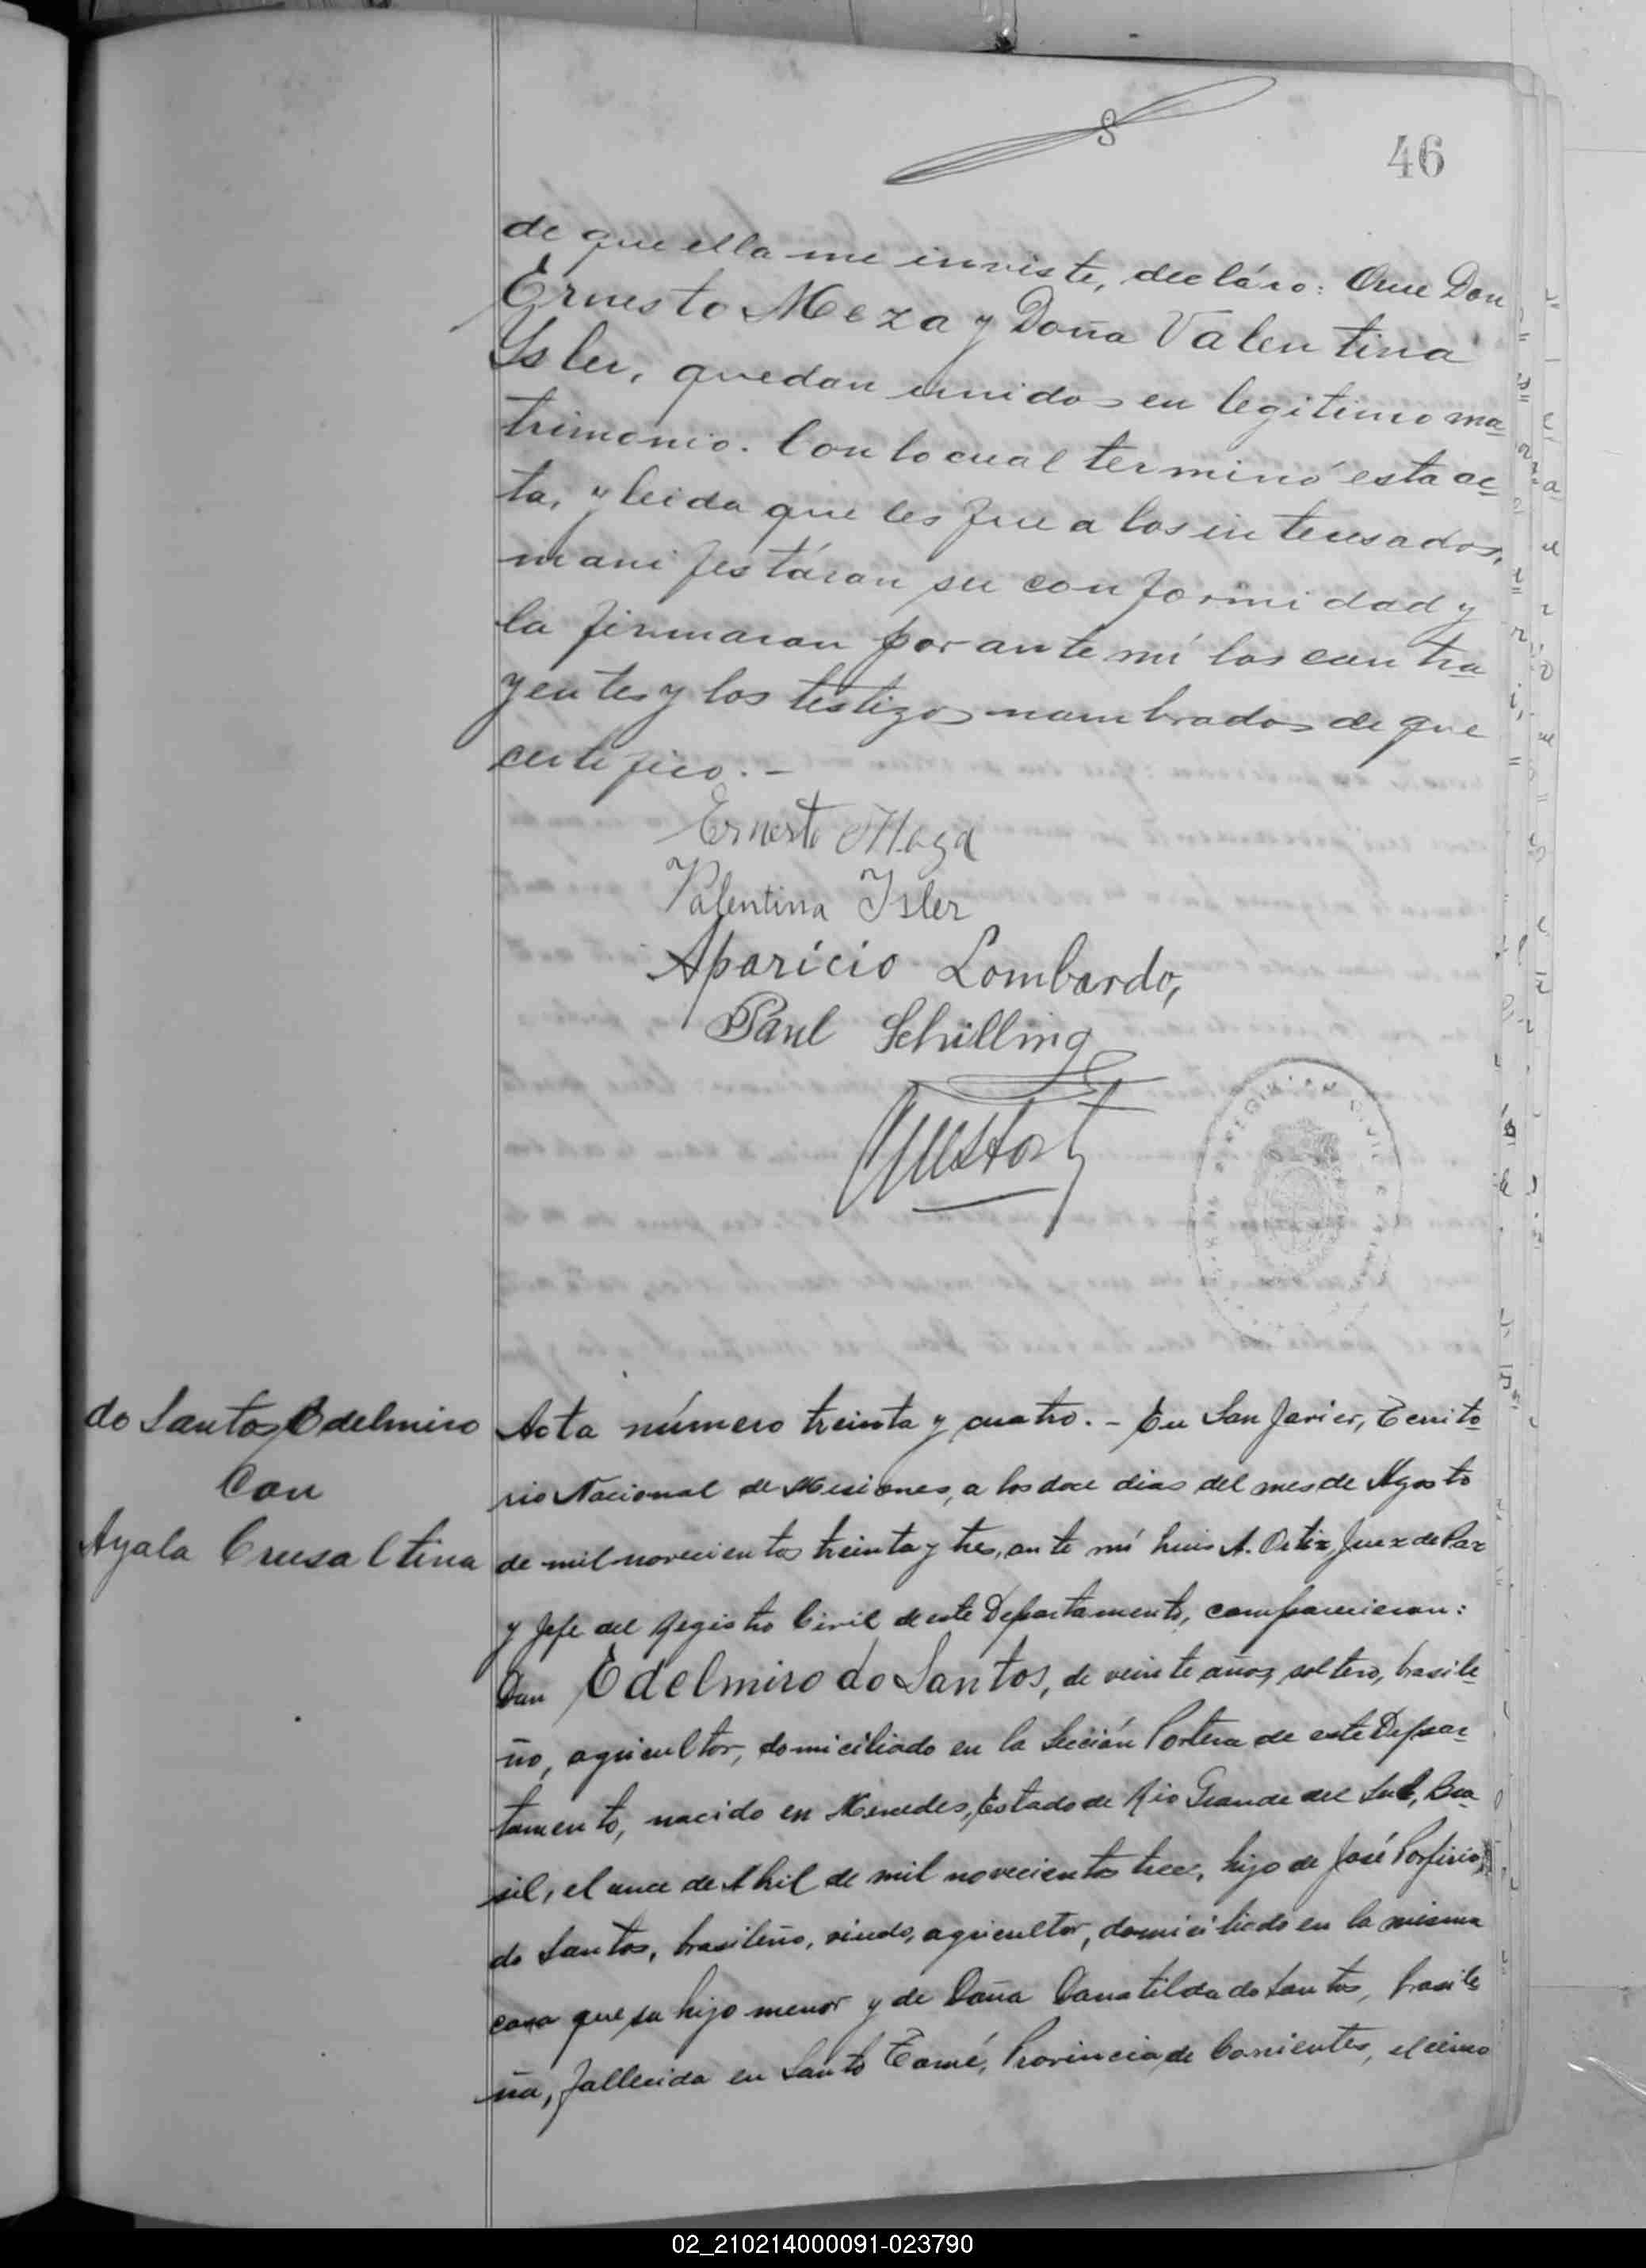 46
de que ella me inviste, decláro: Que Don
Ernesto Meza y Doña Valentina
Isler, quedan unidos en legitimo ma-
trimonio. Con lo cual terminó esta ac-
ta, y leida que les fue a los interesados,
manifestáron su conformidad y
la firmaron por ante mí los contra-
yentes y los testigos nombrados de que
certifico.-
Ernesto Meza
Valentina Isler
Aparicio Lombardo,
Paul Schilling
do Santos Edelmiro
Con
Ayala Crusaltina
Acta número treinta y cuatro.- En San Javier, Territo-
rio Nacional de Misiones, a los doce dias del mes de Agosto
de mil novecientos treinta y tres, ante mí Luis A. Ortiz, Juez de Paz
y Jefe del Registro Civil de este Departamento, comparecieron:
Don Edelmiro do Santos, de veinte años, soltero, brasile-
ño, agricultor, domiciliado en la Sección Portera de este Depar-
tamento, nacido en Mercedes, Estado de Rio Grande del Sud, Bra-
sil, el once de Abril de mil novecientos trece, hijo de José Porfirio
do Santos, brasileño, viudo, agricultor, domiciliado en la misma
casa que su hijo menor y de Doña Donatilda do Santos, brasile-
ña, fallecida en Santo Tomé, Provincia de Corrientes, el cinco
02_210214000091-023790